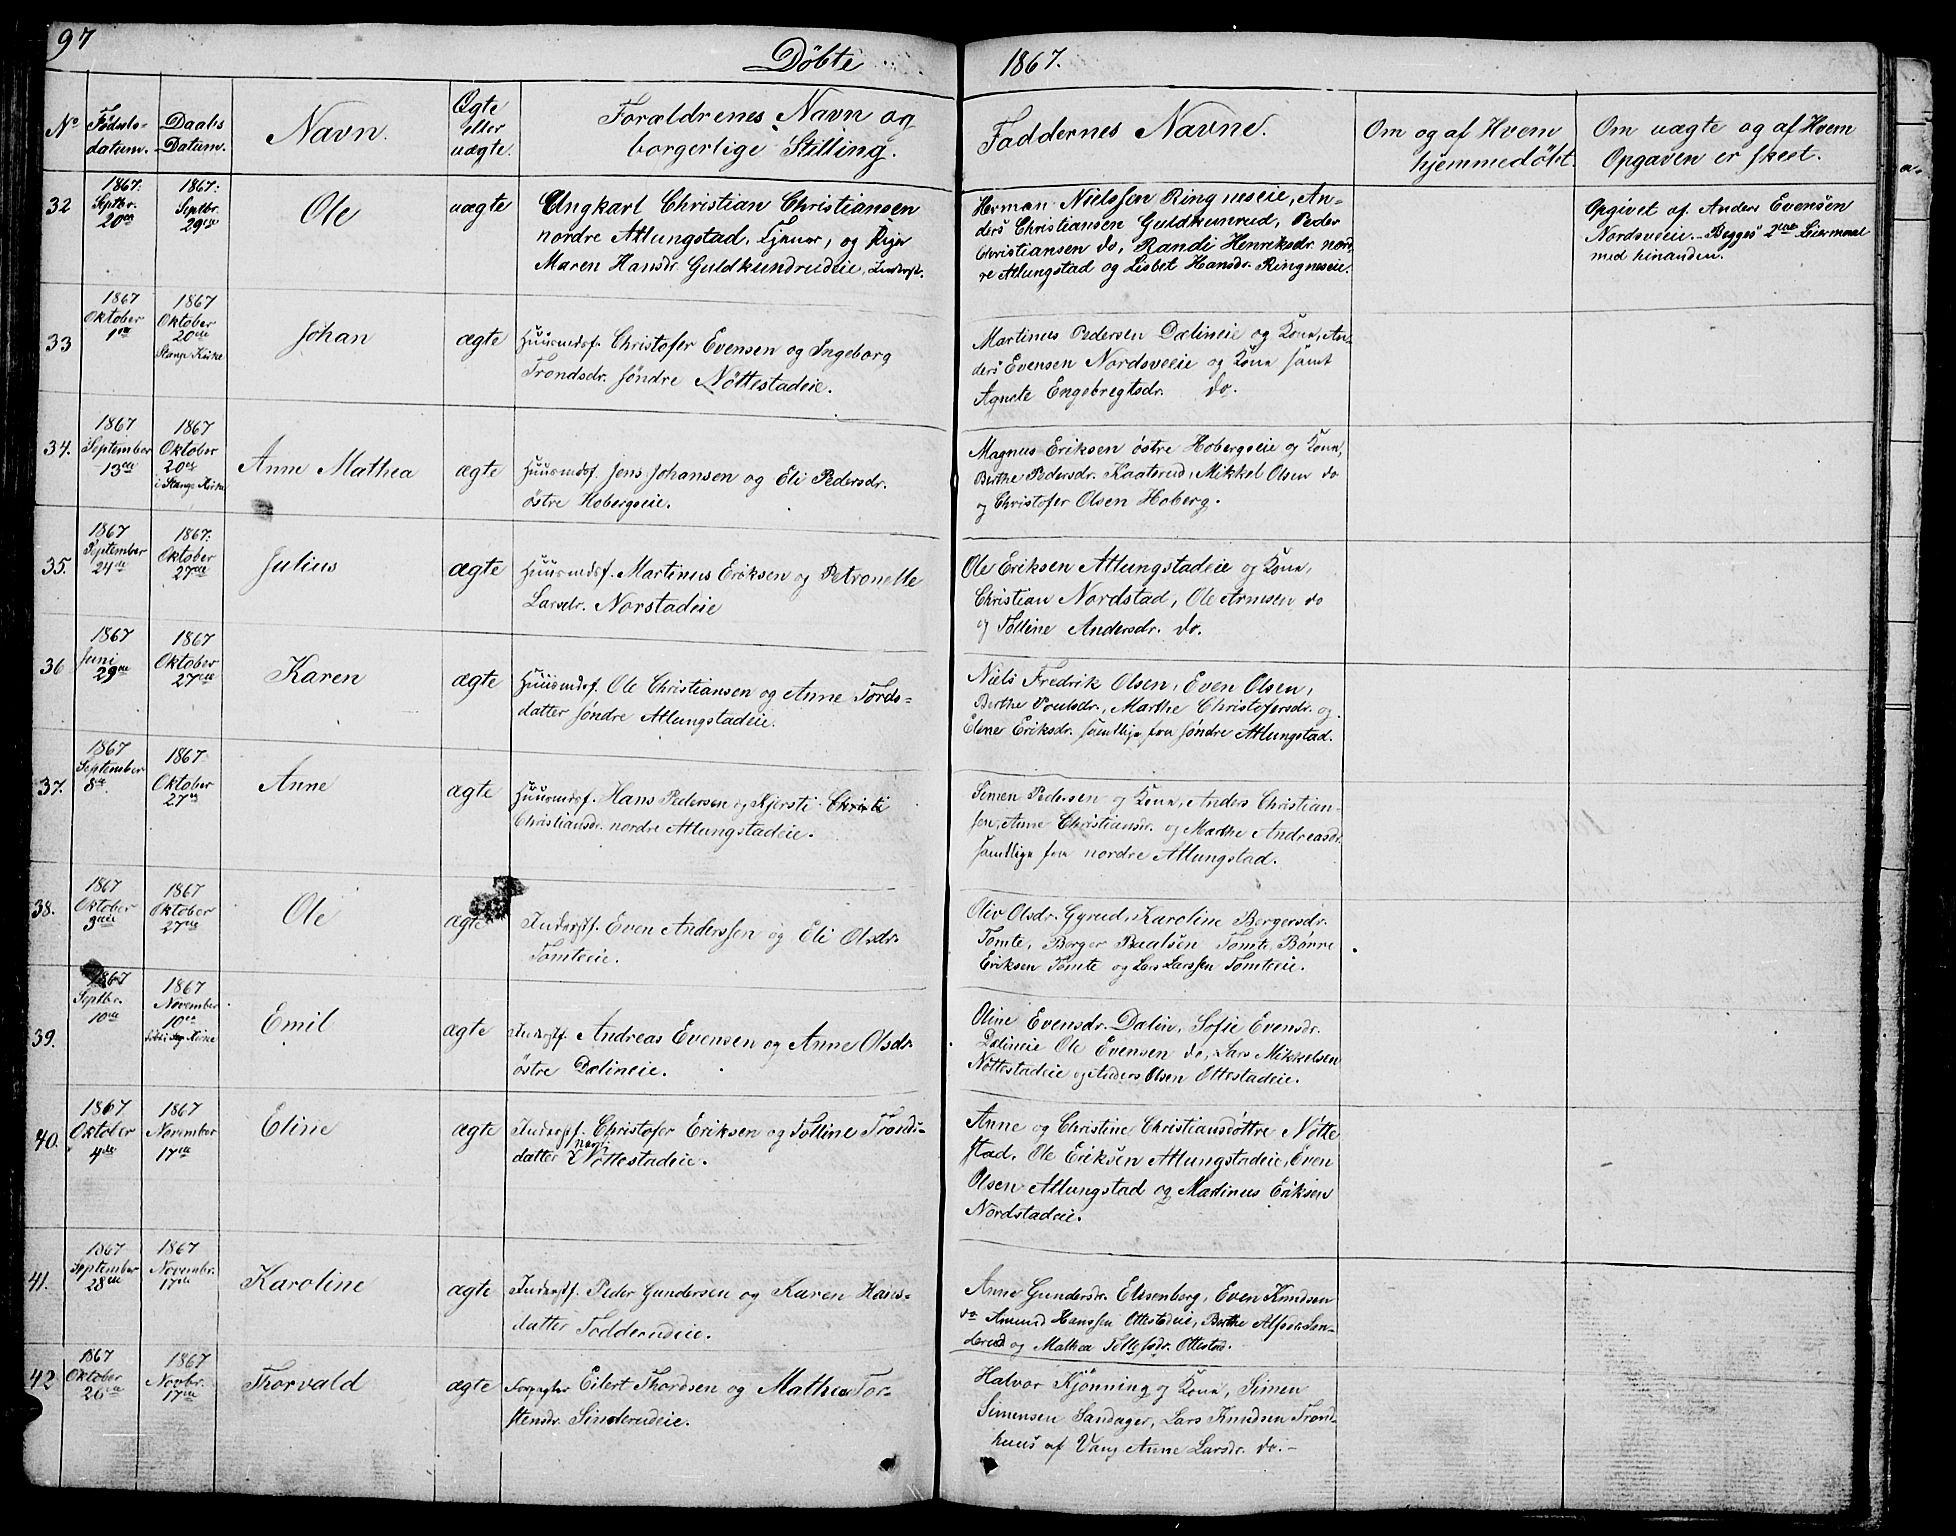 97
Döbte 1867.
No Fødsels-datum. Daabs Datum. Navn. Ægte eller uægte. Forældrenes Navn og borgerlige Stilling. Faddernes Navne. Om og af Hvem hjemmedöbt. Om uægte og af Hvem Opgaven er skeet.
32 1867. Septbr. 20de 1867: Septbr. 29de Ole uægte
Ungkarl Christian Christiansen
nordre Atlungstad, Tjener, og Pige
Maren Hansdr. Guldkundrudeie, Inderst.
Herman Nielssen Ringneseie, An-
ders Christiansen Guldkunrud, Peder
Christiansen do, Randi Henriksdr. nord
re Atlungstad og Lisbet Hansdr. Ringneseie.
Opgivet af Anders Evensen
Nordsveeie. - Begges 2det Leiermaal
med hinanden.
33 1867 Oktober 1ste 1867 Oktober 20de Stange Kirke Johan ægte
Huusmdsf. Christofer Evensen og Ingeborg
Trondsdr. søndre Nöttestadeie.
Martines Pedersen Dælineie og Kone, An-
ders Evensen Nordsveeie og Kone samt
Agnete Engebregtsdr. do.
34. 1867 September 13de 1867 Oktober 20de i Stange Kirke Anne Mathea ægte
Huusmdsf. Jens Johansen og Eli Pedersdr.
östre Hobergseie.
Magnus Eriksen östre Hobergseie og Kone,
Berthe Pedersdr. Kaatsrud, Mikkel Olsen do
og Christofer Olsen Hoberg.
35. 1867 September 24de 1867: Oktober 27de Julius ægte
Huusmdsf. Martinus Eriksen og Petronelle
Larsdr. Norstadeie
Ole Eriksen Atlungstadeie og Kone,
Christian Nordstad, Ole Arnesen do
og Tolline Andersdr. do.
36 1867 Juni 29de 1867 Oktober 27de Karen ægte
Huusmdsf. Ole Christiansen og Anne Tords-
datter søndre Atlungstadeie.
Niels Fredrik Olsen, Even Olsen,
Berthe Poulsdr., Marthe Christofersdr. og
Elene Eriksdr. samtlige fra søndre Atlungstad.
37. 1867 September 8de 1867. Oktober 27de Anne ægte
Huusmdsf. Hans Pedersen og Kjersti Christi
Christiansdr. nordre Atlungstadeie.
Simen Pedersen og Kone, Anders Christian-
sen, Anne Christiansdr. og Marthe Andreasdr.
samtlige fra nordre Atlungstad.
38. 1867 Oktober 3die 1867 Oktober 27de Ole ægte
Inderstf. Even Anderssen og Eli Olsdr.
Tomteie.
Oliv Olsdr. Gyrud, Karoline Bergersdr.
Tomte, Berger Paalsen Tomte, Börre
Eriksen Tomte og Lars Larssen Tomteie.
39. 1867 Septbr. 10de 1867 November 10de Emil ægte
Inderstf. Andreas Evensen og Anne Olsdr.
östre Dælineie.
Oline Evensdr. Dælin, Sofie Evensdr.
Dælineie Ole Evensen do, Lars Mikkelsen
Nöttestadeie og Anders Olsen Ottestadeie.
40. 1867 Oktober 4de 1867 November 17de Eline ægte
Inderstf. Christofer Eriksen og Tolline Tronds-
datter Nöttestadeie.
Anne og Christine Christiansdöttre Nötte
stad, Ole Eriksen Atlungstadeie, Even
Olsen Atlungstad og Martinus Eriksen
Nordstadeie.
41. 1867 September 28de 1867 Novembr. 17de Karoline ægte
Inderstf. Peder Gundersen og Karen Hans-
datter Todderudeie.
Anne Gundersdr. Elisenberg, Even Knudsen
do Amund Hanssen Ottestadeie, Berthe Alfsdr. Sin-
derud og Mathea Tollefsdr. Ottestad.
42 1867 Oktober 20de 1867 Novbr. 17de Thorvald ægte
Forpagter Eilert Thordsen og Mathea Tor-
stensdr. Sinderudeie.
Halvor Kjönning og Kone, Simen
Simensen Sandager, Lars Knudsen Trond-
huus af Vang Anne Larsdr. do. -